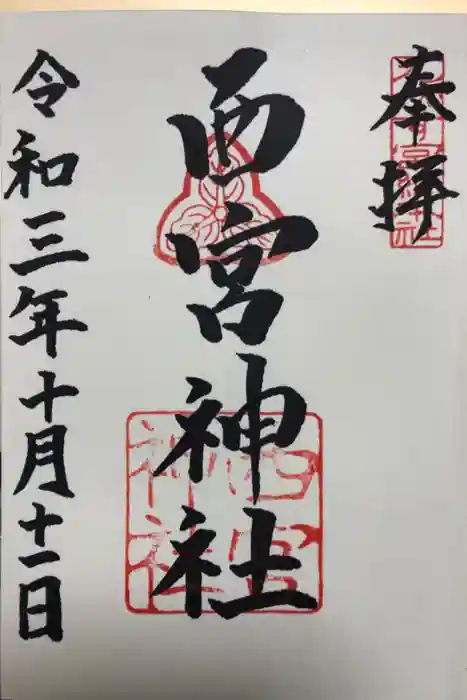 奉拝
西宮神社
令和三年十月十一日
西宮
神社